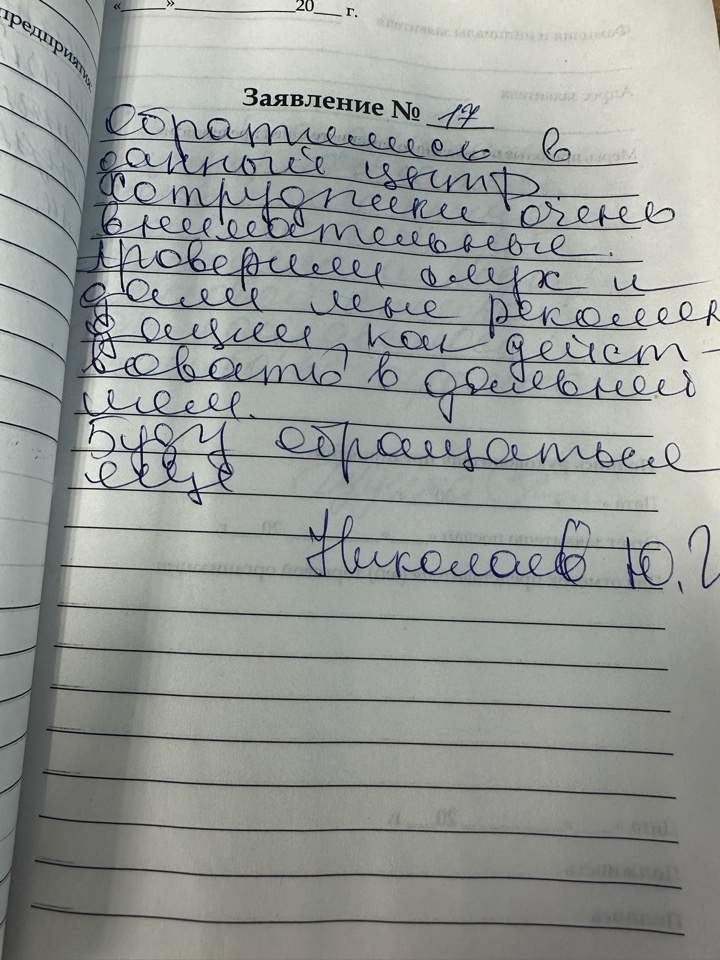 предприятия:
«____»____________20___ г.
Заявление № 17
обратились в
данный центр
Сотрудники очень
внимательные.
проверили слух и
дали мне рекомен
дации, как дейст-
вовать в дальней
шем.
Буду обращаться
еще
Николаев Ю.